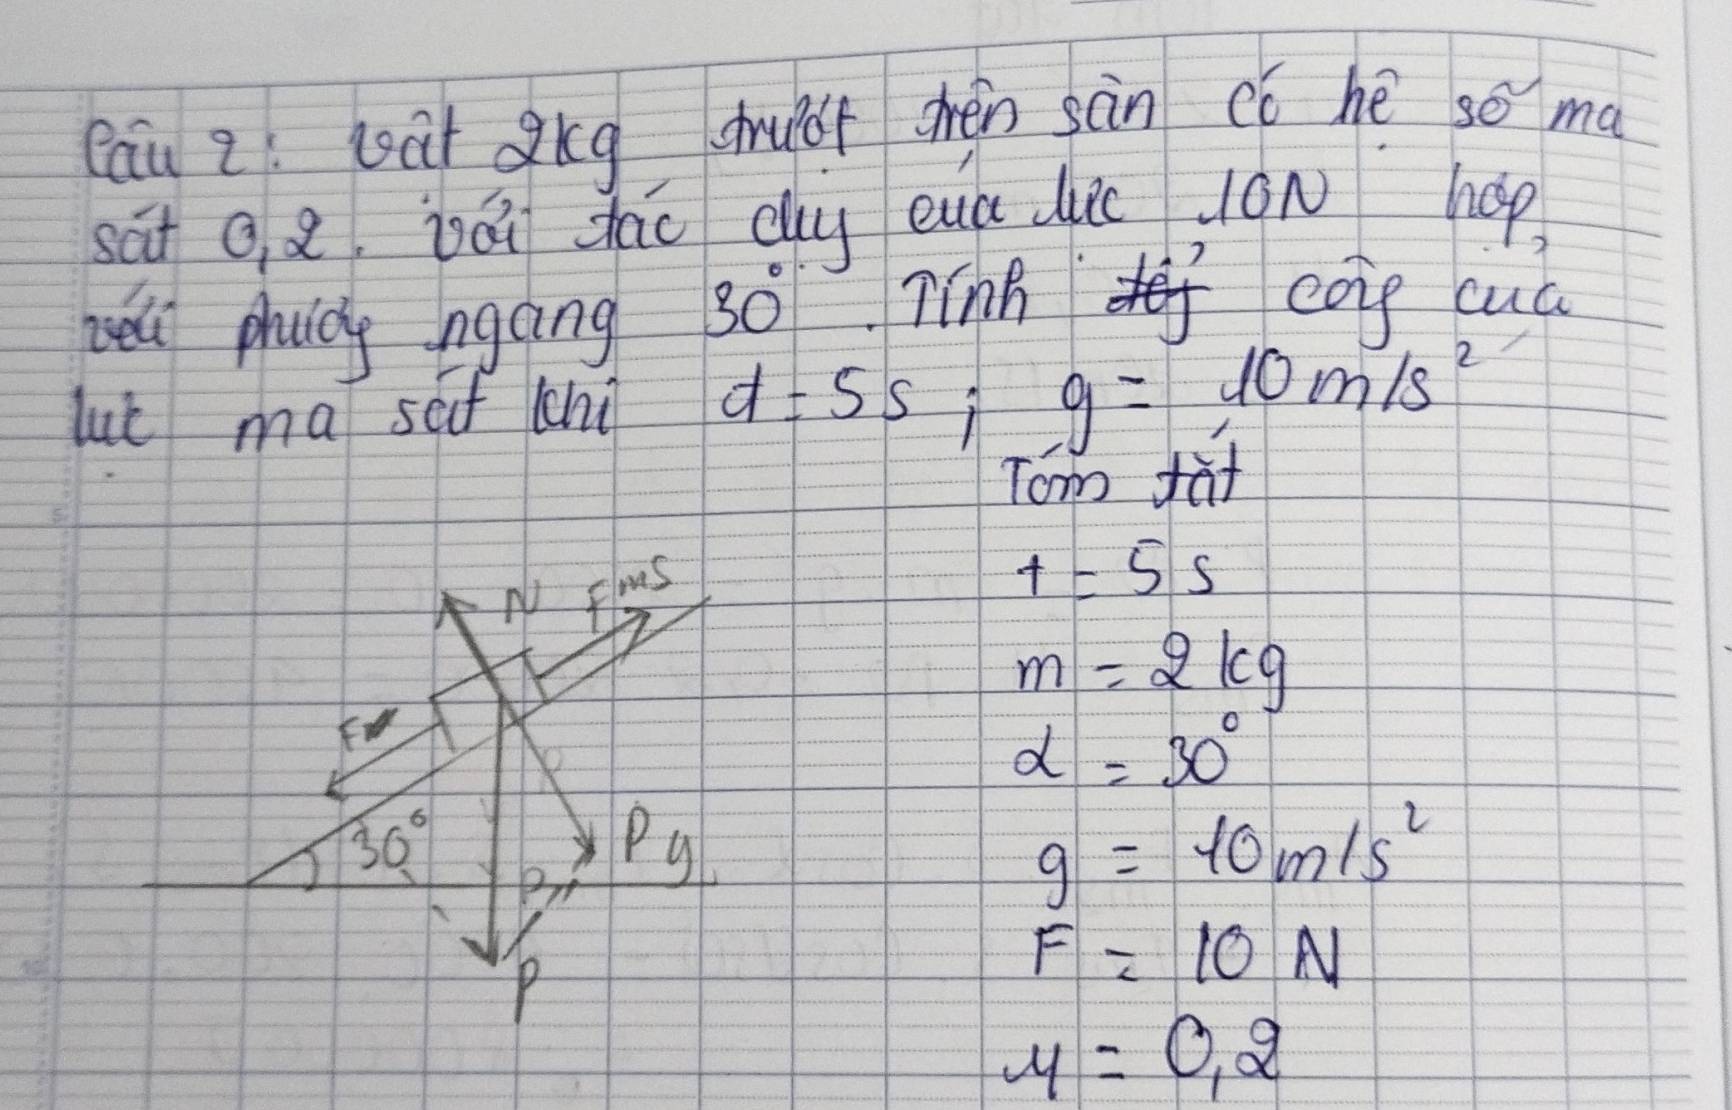 Câu 2: Vật 2kg trượt trên sàn có hệ số ma
sát 0,2. Với tác dụng của lực 10N hợp
với phương ngang 30°. Tính công của
lực ma sát khi t = 5s; g = 10m/s²
Tóm tắt
t = 5s
m = 2kg
α = 30°
g = 10m/s²
F = 10N
μ = 0,2
N
Fms
F
30°
Py
P